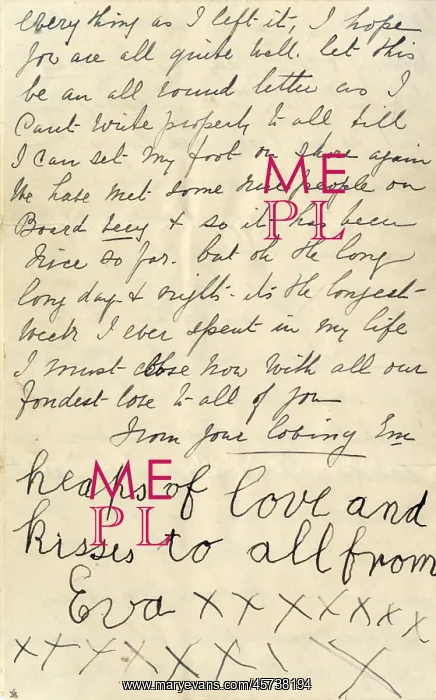 everything as I left it, I hope
you are all quite well. let this
be an all round letter as I
Cant Write properly to all till
I can set My foot on shore again
We have Met some nice people on
Board Lucy & so it has been
Nice so far. but oh the long
long day & nights. its the longest
Week I ever spent in My life
I must close Now With all our
fondest love to all of you
From Your loving Em
heaps of love and
kisses to all from
Eva x x x x x x x x
x x x x x x x x x
ME
PL
ME
PL
www.maryevans.com/45738194